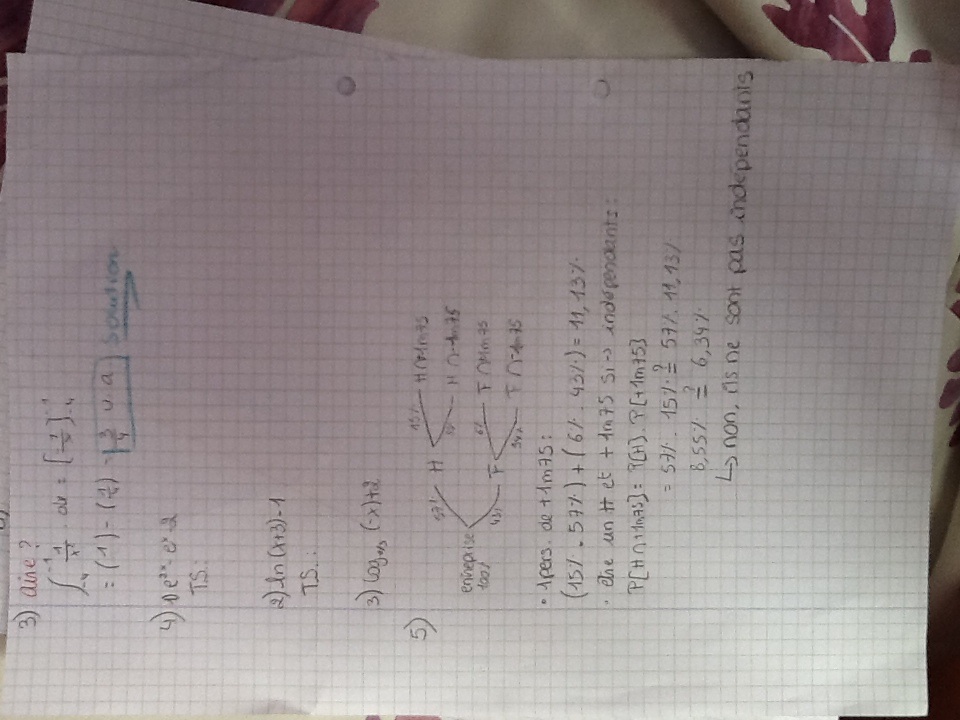 3) aire ?
∫₋₄⁻¹ 1/x² dx = [1/x]₋₄⁻¹
= (1) - (1/4) = 3/4 u.a Solution
4) 1) e²ˣ - eˣ - 2
T.S. :
2) ln (x+3) - 1
T.S. :
3) log₁/₃ (-x) + 2
5)
entreprise 100%
57% H
15% H ∩ +1m75
H ∩ -1m75
43% F
6% F ∩ +1m75
94% F ∩ -1m75
• 1 pers. de +1m75 :
(15% . 57%) + (6% . 43%) = 11,13%
• être un H et +1m75 si → indépendants :
P[H ∩ +1m75] = P[H] . P[+1m75]
= 57% . 15% ?= 57% . 11,13%
8,55% ?= 6,34%
↳ non, ils ne sont pas indépendants